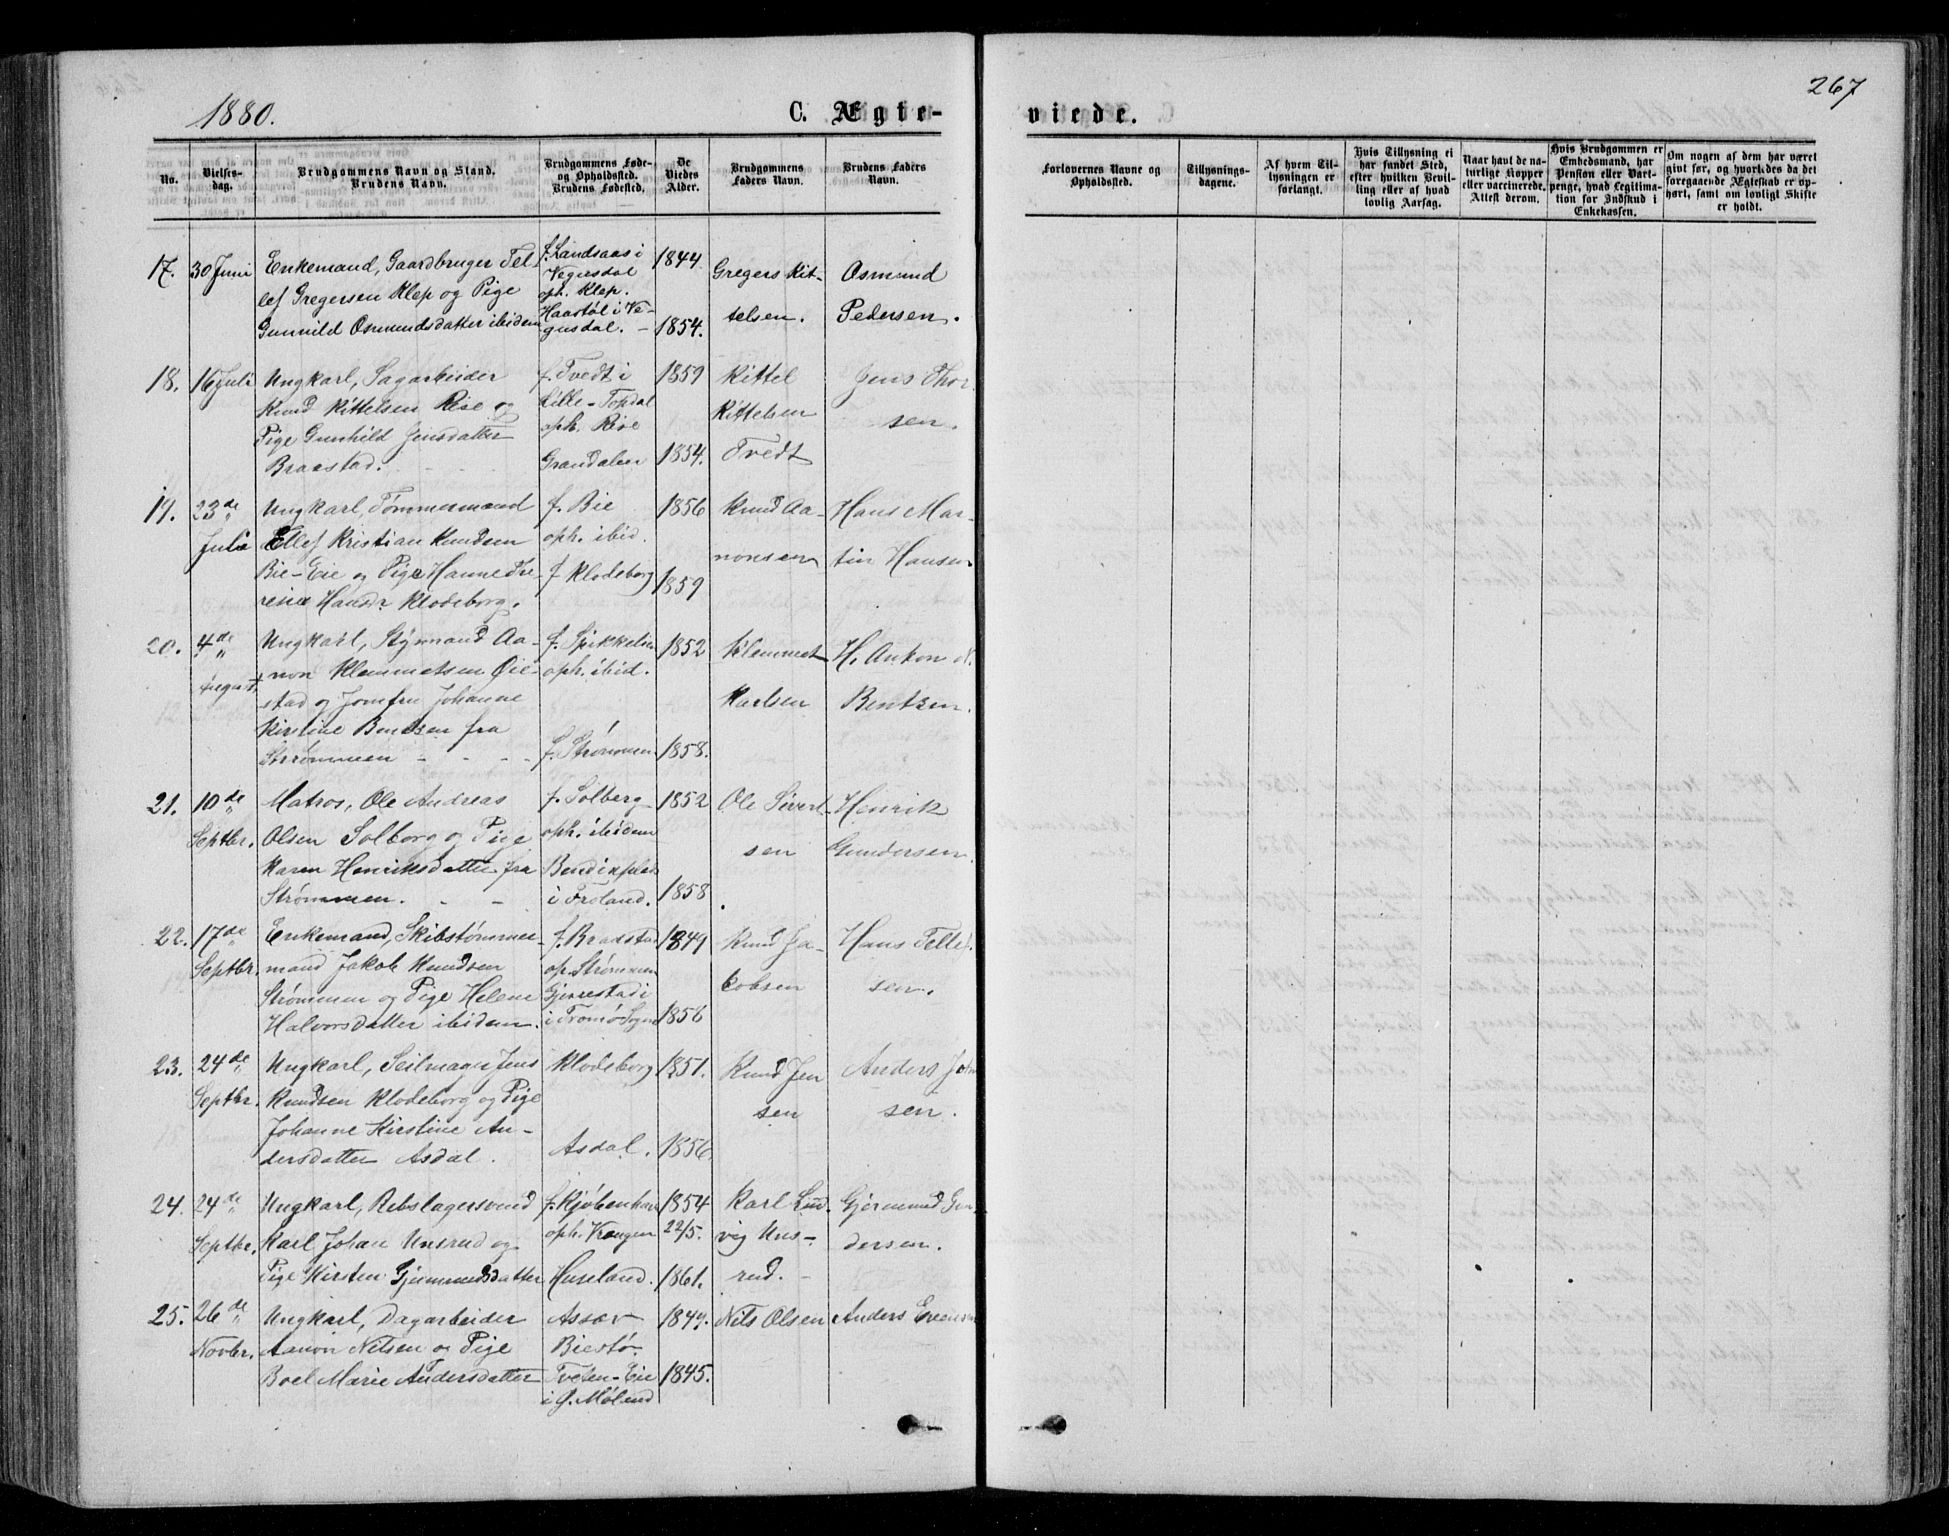 267
1880.
C. Ægte-
viede.
No.
Vielses-
dag.
Brudgommens Navn og Stand.
Brudens Navn.
Brudgommens Føde-
og Opholdssted.
Brudens Fødested.
De
Viedes
Alder.
Brudgommens
Faders Navn.
Brudens Faders
Navn.
Forlovernes Navne og
Opholdssted.
Tillysnings-
dagene.
Af hvem Til-
lysningen er
forlangt.
Hvis Tillysning ei
har fundet Sted,
efter hvilken Bevil-
ling eller af hvad
lovlig Aarsag.
Naar havt de na-
turlige Kopper
eller vaccinerede.
Attest derom.
Hvis Brudgommen er
Embedsmand, har
Pension eller Vart-
penge, hvad Legitima-
tion for Indskud i
Enkekassen.
Om nogen af dem har været
givt før, og hvorledes da det
foregaaende Ægteskab er op-
hørt, samt om lovligt Skifte
er holdt.
17.
30 Juni
Enkemand, Gaardbruger Tel-
lef Gregersen Klep og Pige
Gunnild Osmundsdatter ibidem
f. Landsaas i
Vegusdal
oph. Klep.
Haastøl i Ve-
gusdal. -
1844
1854.
Gregers Kit-
telsen.
Osmund
Pedersen.
18.
16 Juli
Ungkarl, Sagarbeider
Knud Kittelsen Rise og
Pige Gunhild Jensdatter
Braastad.
f. Tvedt i
Lille-Topdal
oph. Rise
Grandalen
1859
1854.
Kittel
Kittelsen
Tvedt
Jens Thor-
sen.
19.
23de
Juli
Ungkarl, Tømmermand
Ellef Kristian Knudsen
Bie-Eie og Pige Hanne The-
resie Hansdr Klodeborg.
f. Bie
oph. ibid.
f Klodeborg
1856
1859
Knud Aa-
nonsen
Hans Mar-
tin Hansen
20.
4de
August
Ungkarl, Styrmand Aa-
non Klemmetsen Øie-
stad og Jomfru Johanne
Kirstine Bentsen fra
Strømmen - - -
f. Spikkelien
oph. ibid.
f. Strømmen
1852
1858.
Klemmet
Karlsen
H. Anton
Bentzen.
21.
10de
Septbr.
Matros, Ole Andreas
Olsen Solberg og Pige
Karen Henriksdatter fra
Strømmen. - -
f. Solberg
oph. ibidem
Bendixplads
i Froland.
1852
1858
Ole Sivert-
sen
Henrik
Gundersen.
22.
17de
Septbr.
Enkemand, Skibstømmer-
mand Jakob Knudsen
Strømmen og Pige Helene
Halvorsdatter ibidem.
f. Braastad
op. Strømmen
Gjerrestad i
i Tromø Sogn
1849
1856
Knud Ja-
cobsen
Hans Tellef-
sen.
23.
24de
Septbr.
Ungkarl, Seilmager Jens
Knudsen Klodeborg og Pige
Johanne Kirstine An-
dersdatter Asdal.
Klodeborg
Asdal.
1851.
1856.
Knud Jen
sen
Anders John
sen.
24.
24de
Septbr.
Ungkarl, Rebslagersvend
Karl Johan Unsrud og
Pige Kirsten Gjermundsdatter
f. Kjøbenhavn
oph. Vrengen
Huseland.
1854
22/5.
1861.
Karl Lud-
vig Uns-
rud. -
Gjermund Gun-
dersen.
25.
26de
Novbr.
Ungkarl, Dagarbeider
Aanon Nilsen og Pige
Boel Marie Andersdatter
Assæv
Biestø.
Tveten-Eie
i Ø. Moland
1849.
1845.
Nils Olsen
Anders Evensen